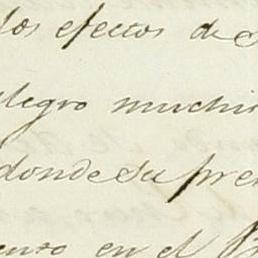 los efectos de
alegro muchi
donde su pre
ento en el